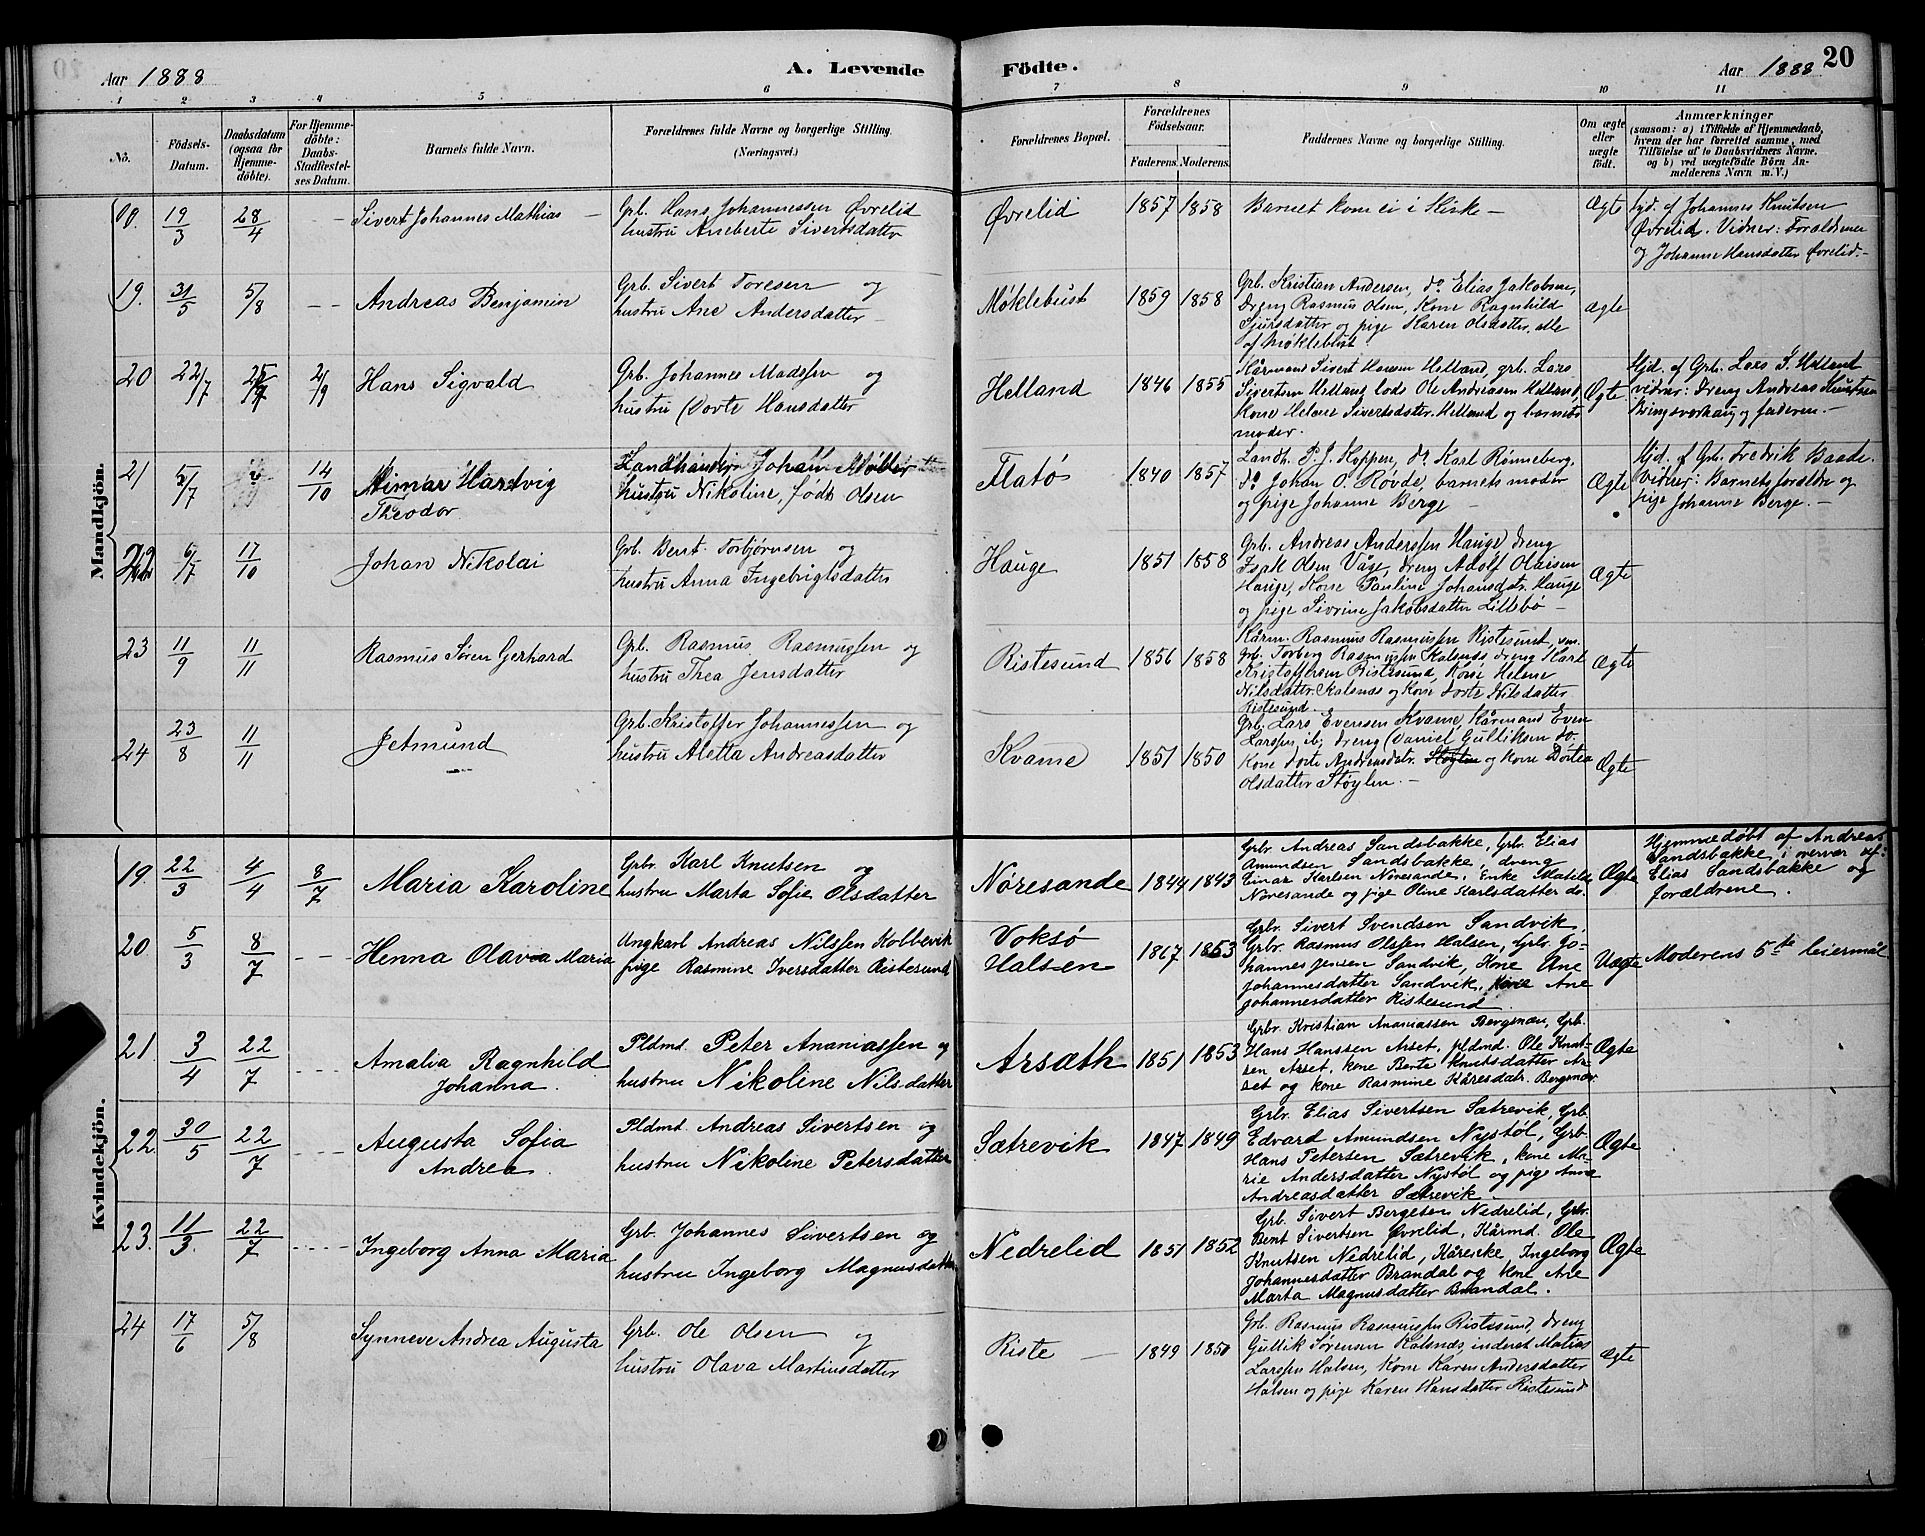 Aar 1888
A. Levende Födte.
Aar 1888
20
1 2 3 4 5 6 7 8 9 10 11
No.
Födsels-Datum.
Daabsdatum (ogsaa for Hjemme-döbte).
For Hjemme-döbte: Daabs-Stadfæstel-ses Datum.
Barnets fulde Navn.
Forældrenes fulde Navne og borgerlige Stilling.
(Næringsvei.)
Forældrenes Bopæl.
Forældrenes Födselsaar.
Faderens. Moderens.
Faddernes Navne og borgerlige Stilling.
Om ægte eller uægte født.
Anmærkninger
(saasom: a) i Tilfælde af Hjemmedaab,
hvem der har forrettet samme, med
Tilføielse af to Daabsvidners Navne.
og b) ved uægtefödte Börn An-
melderens Navn m. V.)
Mandkjön.
19/3 28/4 Sivert Johannes Mathias
Grb. Hans Johannessen Øvrelid
hustru Aneberte Sivertsdatter
Øvrelid 1857 1858
Barnet kom ei i Kirke
Ægte
af Johannes Knutsen
Øvrelid. Vidner: Forældrene
og Johanne Hansdatter Øvrelid.
19. 31/5 5/8 Andreas Benjamin
Grb. Sivert Toresen og
hustru Ane Andersdatter
Møklebust 1859 1858
Grb. Kristian Andersen, do Elias Jakobsen,
Dreng Rasmus Olsen, Kone Ragnhild
Sjursdatter og pige Karen Olsdatter, alle
af Møklebust.
Ægte
20 22/7 2/9 Hans Sigvald
Grb. Johannes Madssen og
hustru Dorte Hansdatter
Helland 1846 1855
Kårmand Sivert Hansen Helland, grb. Lars
Sivertsen Helland, Lods Ole Andreasen Helland,
Kone Helene Sivertsdatter Helland og barnets
moder.
Ægte
Hjd. af Grb. Lars S. Helland
vidner: Dreng Andreas Knutsen
Bringsvorhaug og faderen.
21 5/7 14/10 Almar Hartvig
Theodor
Landhandler Johan Møller
hustru Nikoline, født Olsen
Flatø 1840 1857
Landh. P. J. Hoppen, do Karl Rønneberg,
do Johan O. Røvde, barnets moder
og pige Johanne Berge
Ægte
Hjd. af Grb. Fredrik Baade.
Vidner: Barnets forældre og
pige Johanne Berge.
22 6/7 17/10 Johan Nikolai
Grb. Bernt Torbjørnsen og
hustru Anna Ingebrigtsdatter
Hauge 1851 1858
Grb. Andreas Anderssen Hauge, dreng
Isak Olsen Våge, dreng Adolf Olaisen
Hauge, Kone Pauline Johansdatr. Hauge
og pige Sivrine Jakobsdatter Lillebø
Ægte
23 11/9 11/11 Rasmus Søren Gerhard
Grb. Rasmus Rasmussen og
hustru Thea Jensdatter
Ristesund 1856 1858
Kårm. Rasmus Rasmussen Ristesund,
grb. Torberg Rasmussen Kalsnæs, dreng Karl
Kristoffersen Ristesund, Kone Helene
Nilsdatter Kalsnæs og Kone Dorte Nilsdatter
Ristesund.
Ægte
24 23/8 11/11 Jetmund
Grb. Kristoffer Johannessen og
hustru Aletta Andreasdatter
Kvame 1851 1850
Grb. Lars Evensen Kvame, Kårmand Even
Larssen, ib; dreng Daniel Gulliksen do.
Kone Dorte Andreasdatr. Støylen og Kone Dortea
Olsdatter Støylen.
Ægte
Kvindekjön.
19. 22/3 4/4 8/7 Maria Karoline
Grbr. Karl Knutsen og
hustru Marta Sofie Olsdatter
Nøresande 1844 1843
Grbr. Andreas Sandsbakke, Grb. Elias
Amundsen Sandsbakke, dreng
Einar Karlsen Nøresande, Enke Matilde
Nøresande og pige Oline Karlsdatter do.
Ægte
Hjemmedøbt af Andreas
Sandsbakke i overvær af:
Elias Sandsbakke og
forældrene.
20 5/3 8/7 Henna Olava Maria
Ungkarl Andreas Nilssen Kobbevik
pige Rasmine Iversdatter Ristesund
Voksø
Halsen 1867 1853
Grbr. Sivert Svendsen Sandvik,
Grbr. Rasmus Olssen Halsen, Grbr. Jo-
hannes Jensen Sandvik, Kone Ane
Johannesdatter Sandvik, Kone Ane
Johannesdatter Ristesund
Uægte
Moderens 5te leiermål
21. 3/4 22/7 Amalia Ragnhild
Johanna.
Pldmd. Peter Ananiassen og
hustru Nikoline Nilsdatter
Arsæth 1851 1853
Grbr. Kristian Ananiassen Bergsnæs, Grb.
Hans Hanssen Arset, pldmd. Ole Knut-
sen Arset, kone Bente Knutsdatter Ar-
set og kone Rasmine Kåresdatr. Bergsnæs.
Ægte
22 30/5 22/7 Augusta Sofia
Andrea.
Pldmd. Andreas Sivertsen og
hustru Nikoline Petersdatter
Sætrevik 1847 1849
Grbr. Elias Sivertsen Sætrevik, Grb.
Edvard Amundsen Nystøl, Grb.
Hans Petersen Sætrevik, kone Ma-
rie Andersdatter Nystøl og pige Anna
Andreasdatter Sætrevik.
Ægte
23. 11/3. 22/7 Ingeborg Anna Maria
Grb. Johannes Sivertsen og
hustru Ingeborg Magnusdatter
Nedrelid 1851 1852
Grb. Sivert Bergesen Nedrelid, Grb.
Bent Sivertsen Øvrelid, Kårmd. Ole
Knutsen Nedrelid, Kårenke, Ingeborg
Johannesdatter Brandal og kone Ane
Marta Magnusdatter Brandal.
Ægte
24 17/6 5/8 Synneve Andrea Augusta
Grb. Ole Olsen og
hustru Olava Martinusdatter
Riste 1849 1850
Grb. Rasmus Rasmussen Ristesund, dreng
Gullik Sørensen Kalsnæs, inderst Matias
Larssen Halsen, Kone Karen Andersdatter
Halsen og pige Karen Hansdatter Ristesund
Ægte